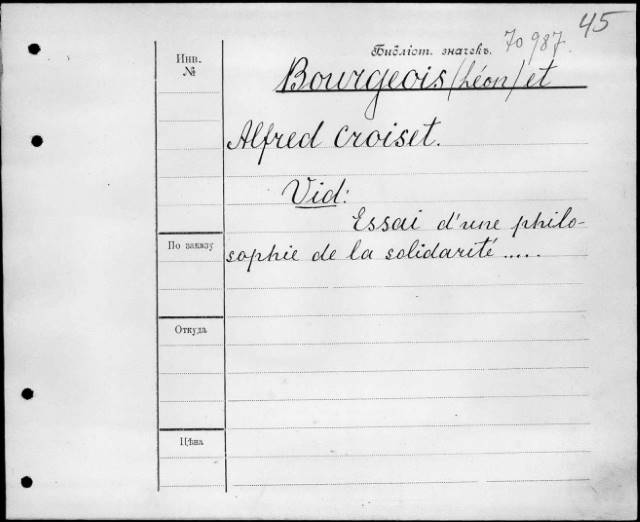 45
Библіот. значекъ. 70987.
Инв.
№
Bourgeois (Léon) et
Alfred Croiset.
Vid:
Essai d'une philo-
По заказу
sophie de la solidarité .....
Откуда
Цѣна